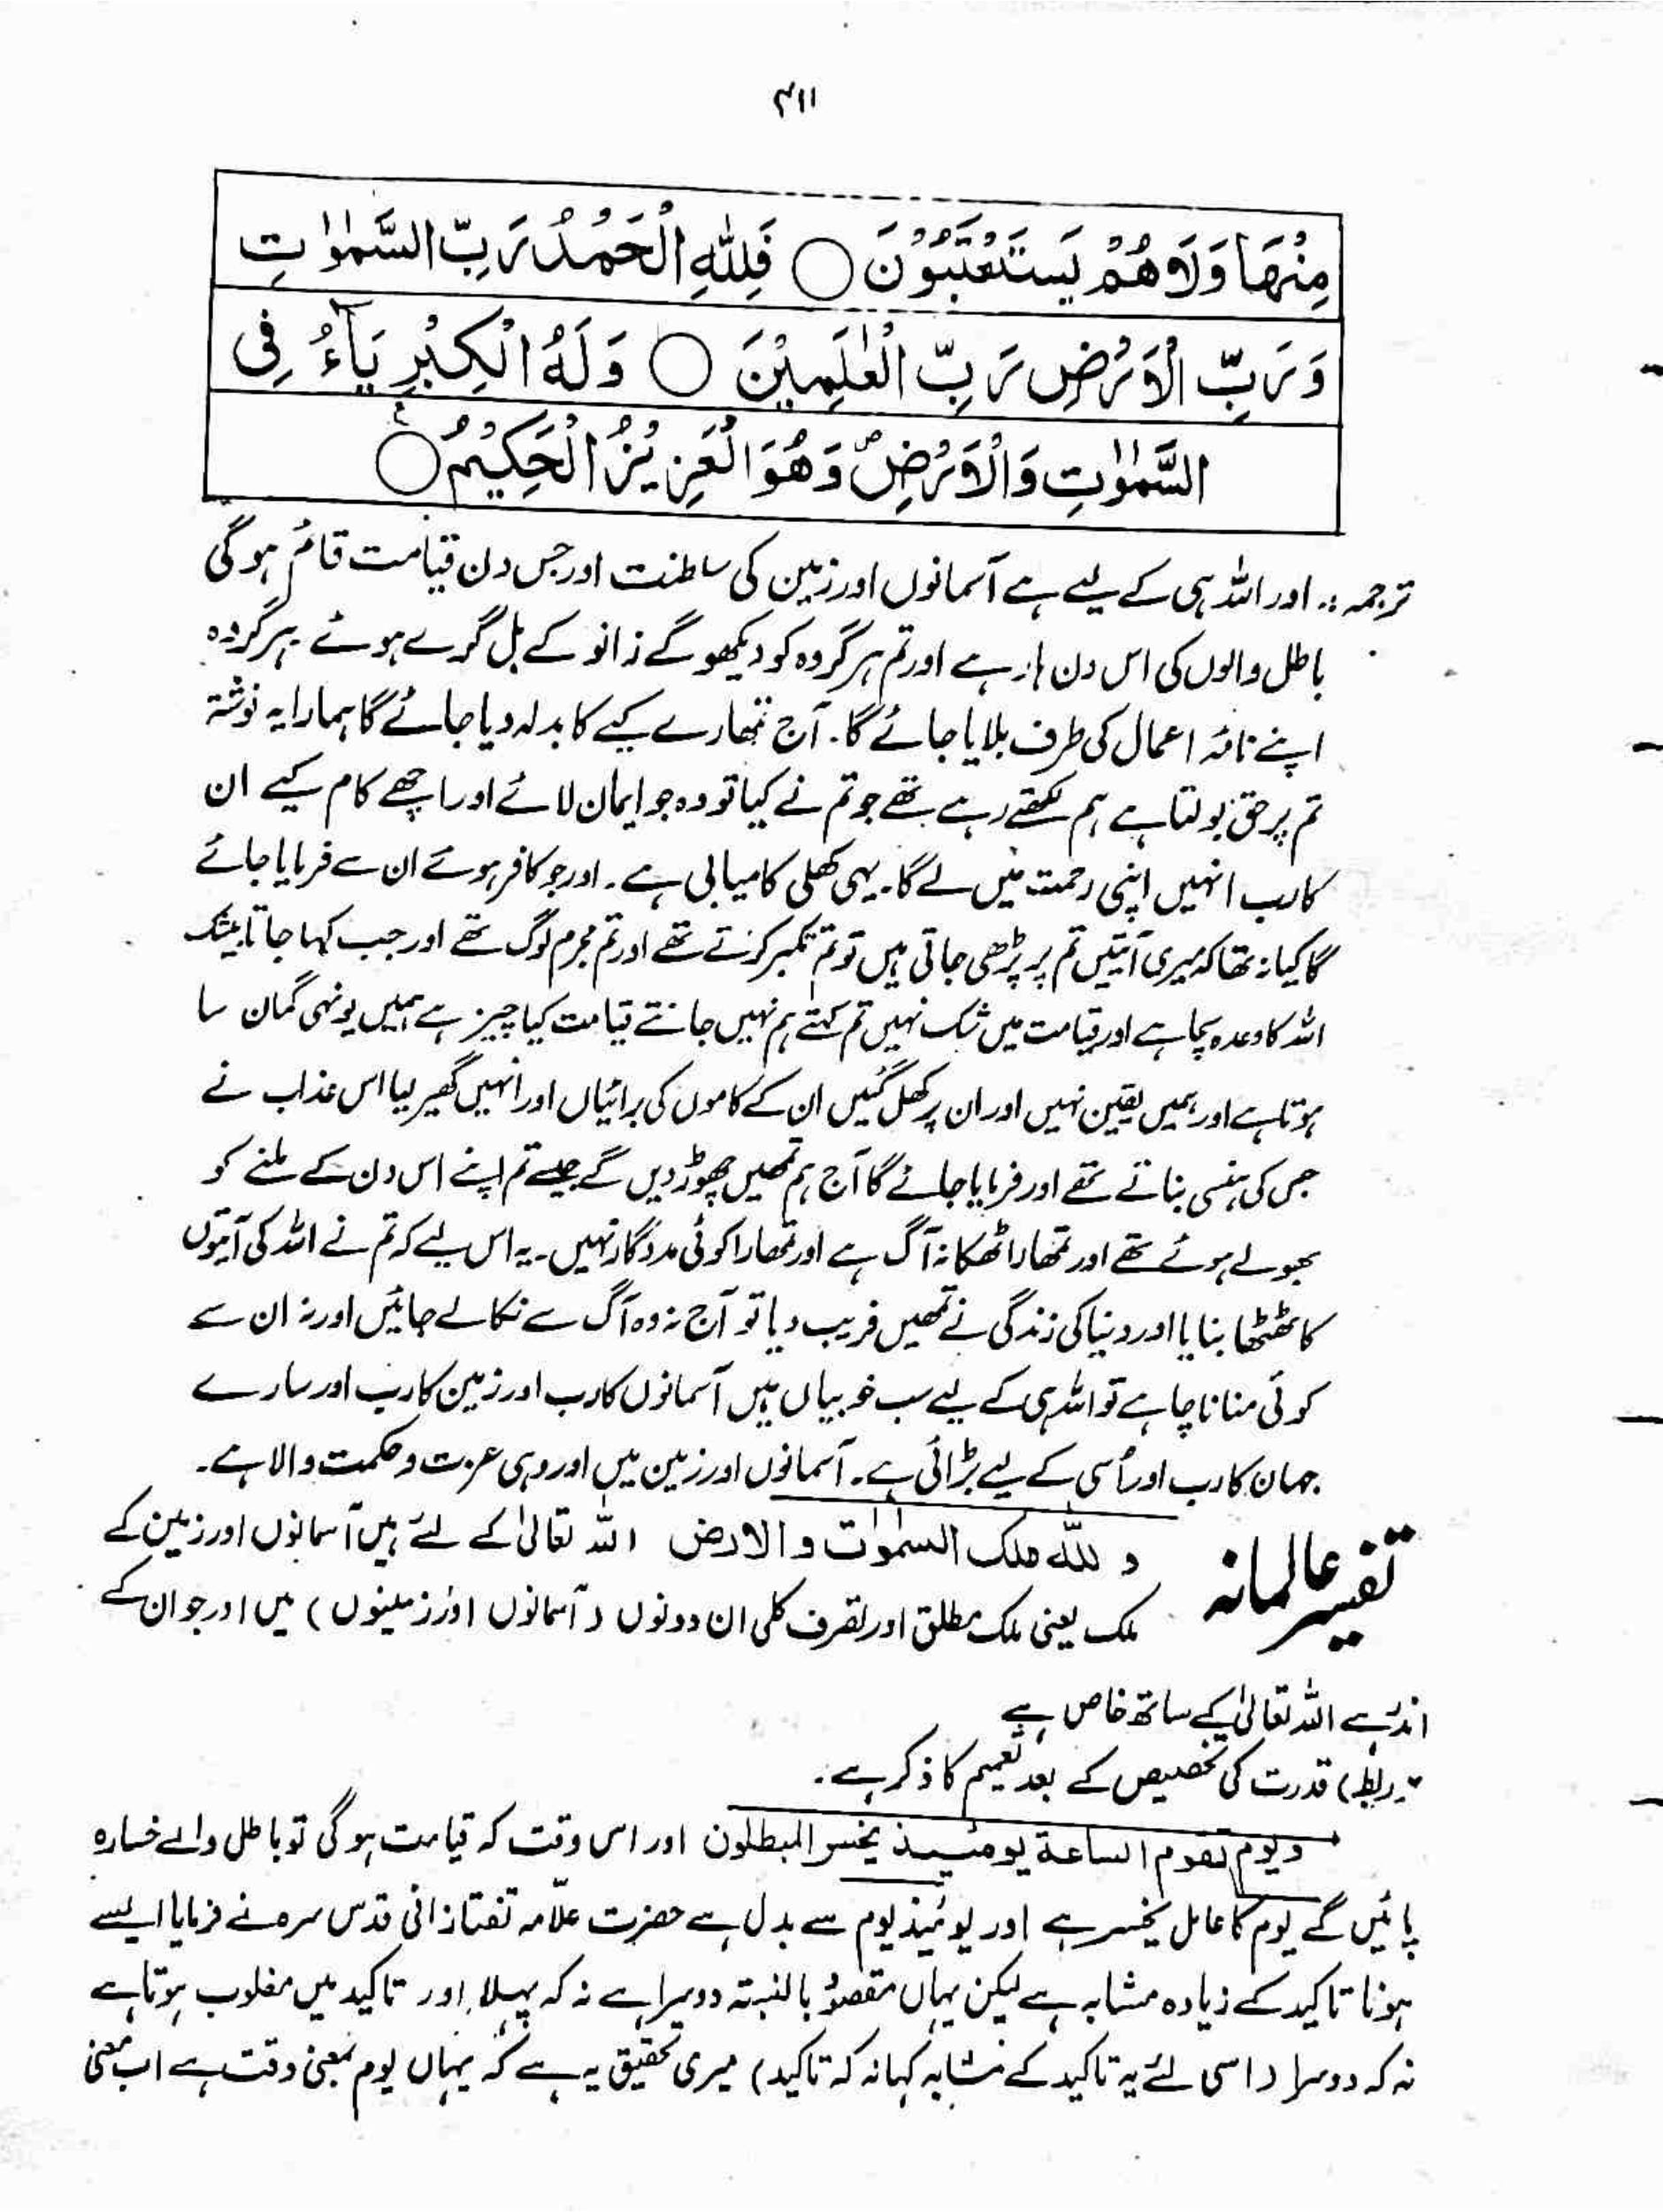 ۴۱۱
مِنْهَا وَلَا هُمْ يُسْتَعْتَبُوْنَ ○ فَلِلّٰهِ الْحَمْدُ رَبِّ السَّمٰوٰتِ
وَرَبِّ الْاَرْضِ رَبِّ الْعٰلَمِيْنَ ○ وَلَهُ الْكِبْرِيَآءُ فِی
السَّمٰوٰتِ وَالْاَرْضِ ۪ وَهُوَ الْعَزِيْزُ الْحَكِيْمُ ○ ع
ترجمہ :۔ اور اللہ ہی کے لیے ہے آسمانوں اور زمین کی سلطنت اور جس دن قیامت قائم ہو گی
باطل والوں کی اس دن ہار ہے اور تم ہر گروہ کو دیکھو گے زانو کے بل گرے ہوئے ہر گروہ
اپنے نامۂ اعمال کی طرف بلایا جائے گا۔ آج تمھارے کیے کا بدلہ دیا جائے گا ہمارا یہ نوشتہ
تم پر حق بولتا ہے ہم لکھتے رہے تھے جو تم نے کیا تو وہ جو ایمان لائے اور اچھے کام کیے ان
کا رب انہیں اپنی رحمت میں لے گا۔ یہی کھلی کامیابی ہے۔ اور جو کافر ہوئے ان سے فرمایا جائے
گا کیا نہ تھا کہ میری آیتیں تم پر پڑھی جاتی ہیں تو تم تکبر کرتے تھے اور تم مجرم لوگ تھے اور جب کہا جاتا بیشک
اللہ کا وعدہ سچا ہے اور قیامت میں شک نہیں تم کہتے ہم نہیں جانتے قیامت کیا چیز ہے ہمیں یونہی گمان سا
ہوتا ہے اور ہمیں یقین نہیں اور ان پر کھل گئیں ان کے کاموں کی برائیاں اور انہیں گھیر لیا اس عذاب نے
جس کی ہنسی بناتے تھے اور فرمایا جائے گا آج ہم تمھیں چھوڑ دیں گے جیسے تم اپنے اس دن کے ملنے کو
بھولے ہوئے تھے اور تمھارا ٹھکانہ آگ ہے اور تمھارا کوئی مددگار نہیں۔ یہ اس لیے کہ تم نے اللہ کی آیتوں
کا ٹھٹھا بنایا اور دنیا کی زندگی نے تمھیں فریب دیا تو آج نہ وہ آگ سے نکالے جائیں اور نہ ان سے
کوئی منانا چاہے تو اللہ ہی کے لیے سب خوبیاں ہیں آسمانوں کا رب اور زمین کا رب اور سارے
جہان کا رب اور اُسی کے لیے بڑائی ہے۔ آسمانوں اور زمین میں اور وہی عزت و حکمت والا ہے۔
تفسیر عالمانہ
و للّٰہ ملک السمٰوٰت والارض اللہ تعالیٰ کے لئے ہیں آسمانوں اور زمین کے
ملک یعنی ملک مطلق اور تصرف کلی ان دونوں ( آسمانوں اور زمینوں ) میں اور جو ان کے
اندر ہے اللہ تعالیٰ کے ساتھ خاص ہے
(ربط) قدرت کی تخصیص کے بعد تعمیم کا ذکر ہے۔
ویوم تقوم الساعۃ یومئیذ یخسر المبطلون اور اس وقت کہ قیامت ہو گی تو باطل والے خسارہ
پائیں گے یوم کا عامل یخسر ہے اور یومئیذ یوم سے بدل ہے حضرت علّامہ تفتازانی قدس سرہ نے فرمایا ایسے
ہونا تاکید کے زیادہ مشابہ ہے لیکن یہاں مقصود بالنسبتہ دوسرا ہے نہ کہ پہلا اور تاکید میں مغلوب ہوتا ہے
نہ کہ دوسرا ( اسی لئے یہ تاکید کے مشابہ کہا نہ کہ تاکید ) میری تحقیق یہ ہے کہ یہاں یوم بمعنیٰ وقت ہے اب معنیٰ